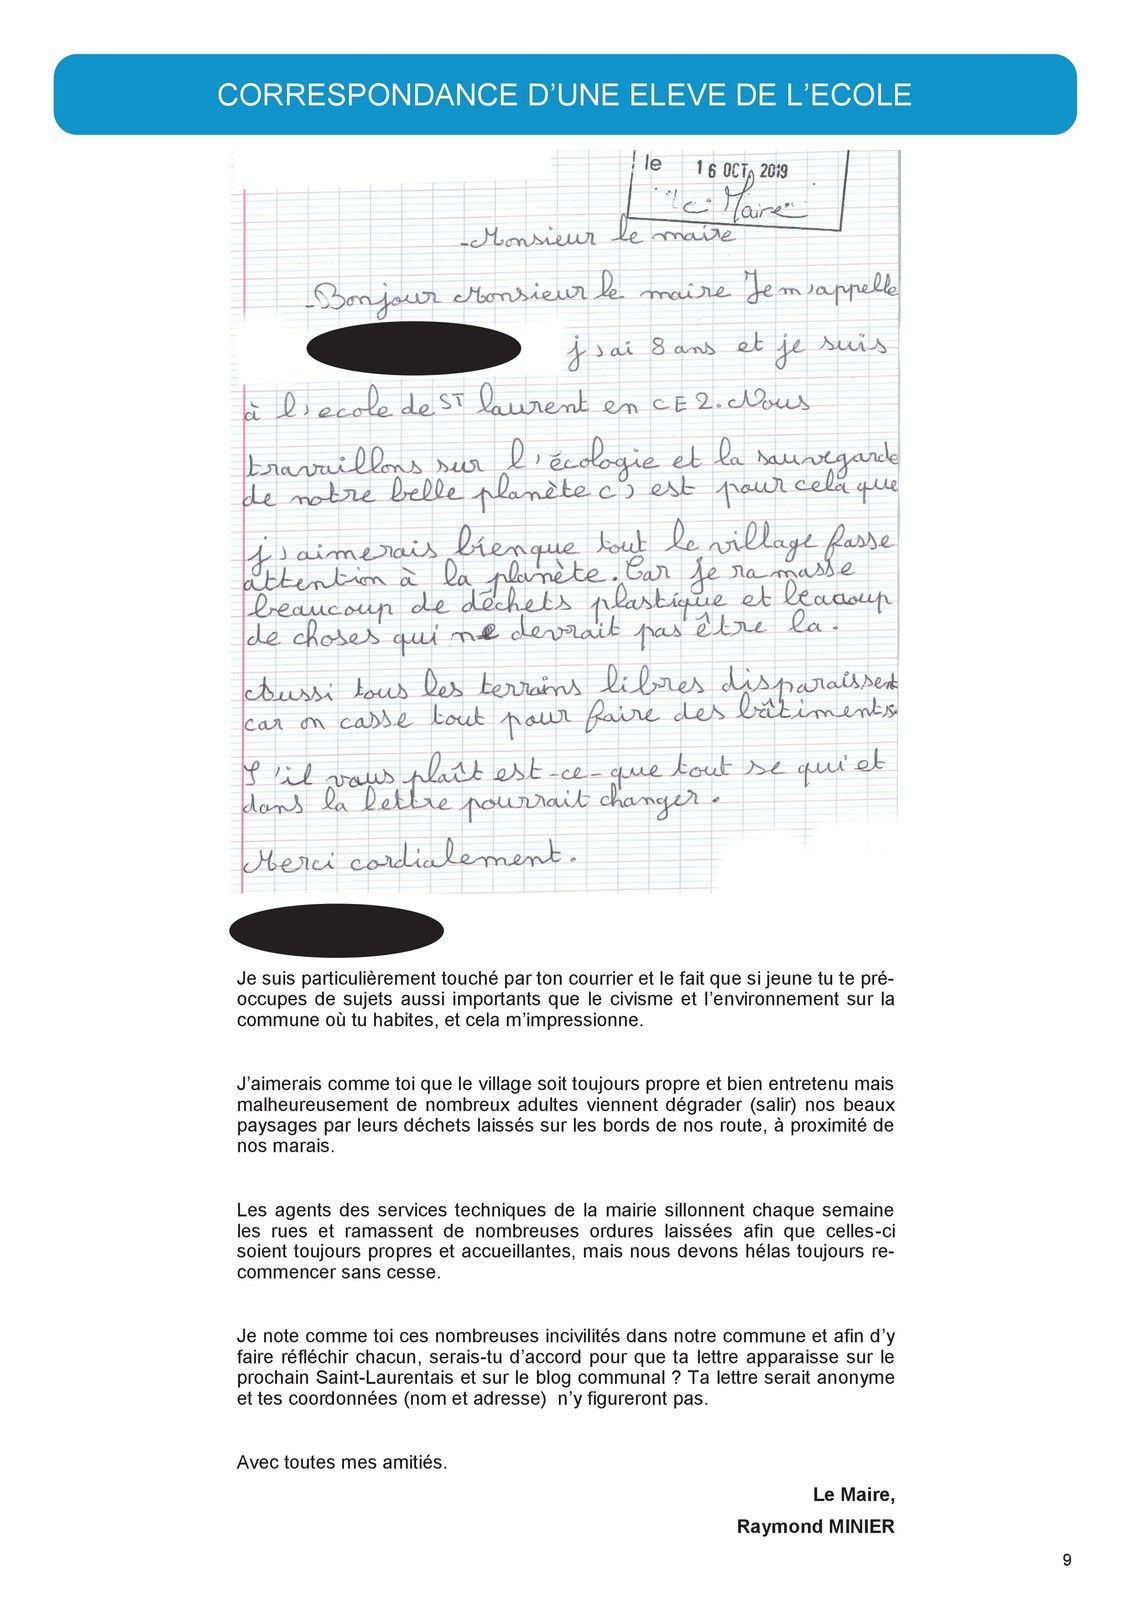 CORRESPONDANCE D'UNE ELEVE DE L'ECOLE
le 16 OCT. 2019
Le Maire
-Monsieur le maire
-Bonjour Monsieur le maire Je m'appelle
j'ai 8 ans et je suis
à l'ecole de ST laurent en CE2. Nous
travaillons sur l'écologie et la sauvegarde
de notre belle planète c'est pour cela que
j'aimerais bien que tout le village fasse
attention à la planète. Car je ramasse
beaucoup de déchets plastique et beacoup
de choses qui ne devrait pas être la.
Aussi tous les terrains libres disparaissent
car on casse tout pour faire des bâtiments.
S'il vous plaît est-ce-que tout se qui et
dans la lettre pourrait changer.
Merci cordialement.
Je suis particulièrement touché par ton courrier et le fait que si jeune tu te pré-
occupes de sujets aussi importants que le civisme et l'environnement sur la
commune où tu habites, et cela m'impressionne.
J'aimerais comme toi que le village soit toujours propre et bien entretenu mais
malheureusement de nombreux adultes viennent dégrader (salir) nos beaux
paysages par leurs déchets laissés sur les bords de nos route, à proximité de
nos marais.
Les agents des services techniques de la mairie sillonnent chaque semaine
les rues et ramassent de nombreuses ordures laissées afin que celles-ci
soient toujours propres et accueillantes, mais nous devons hélas toujours re-
commencer sans cesse.
Je note comme toi ces nombreuses incivilités dans notre commune et afin d'y
faire réfléchir chacun, serais-tu d'accord pour que ta lettre apparaisse sur le
prochain Saint-Laurentais et sur le blog communal ? Ta lettre serait anonyme
et tes coordonnées (nom et adresse) n'y figureront pas.
Avec toutes mes amitiés.
Le Maire,
Raymond MINIER
9